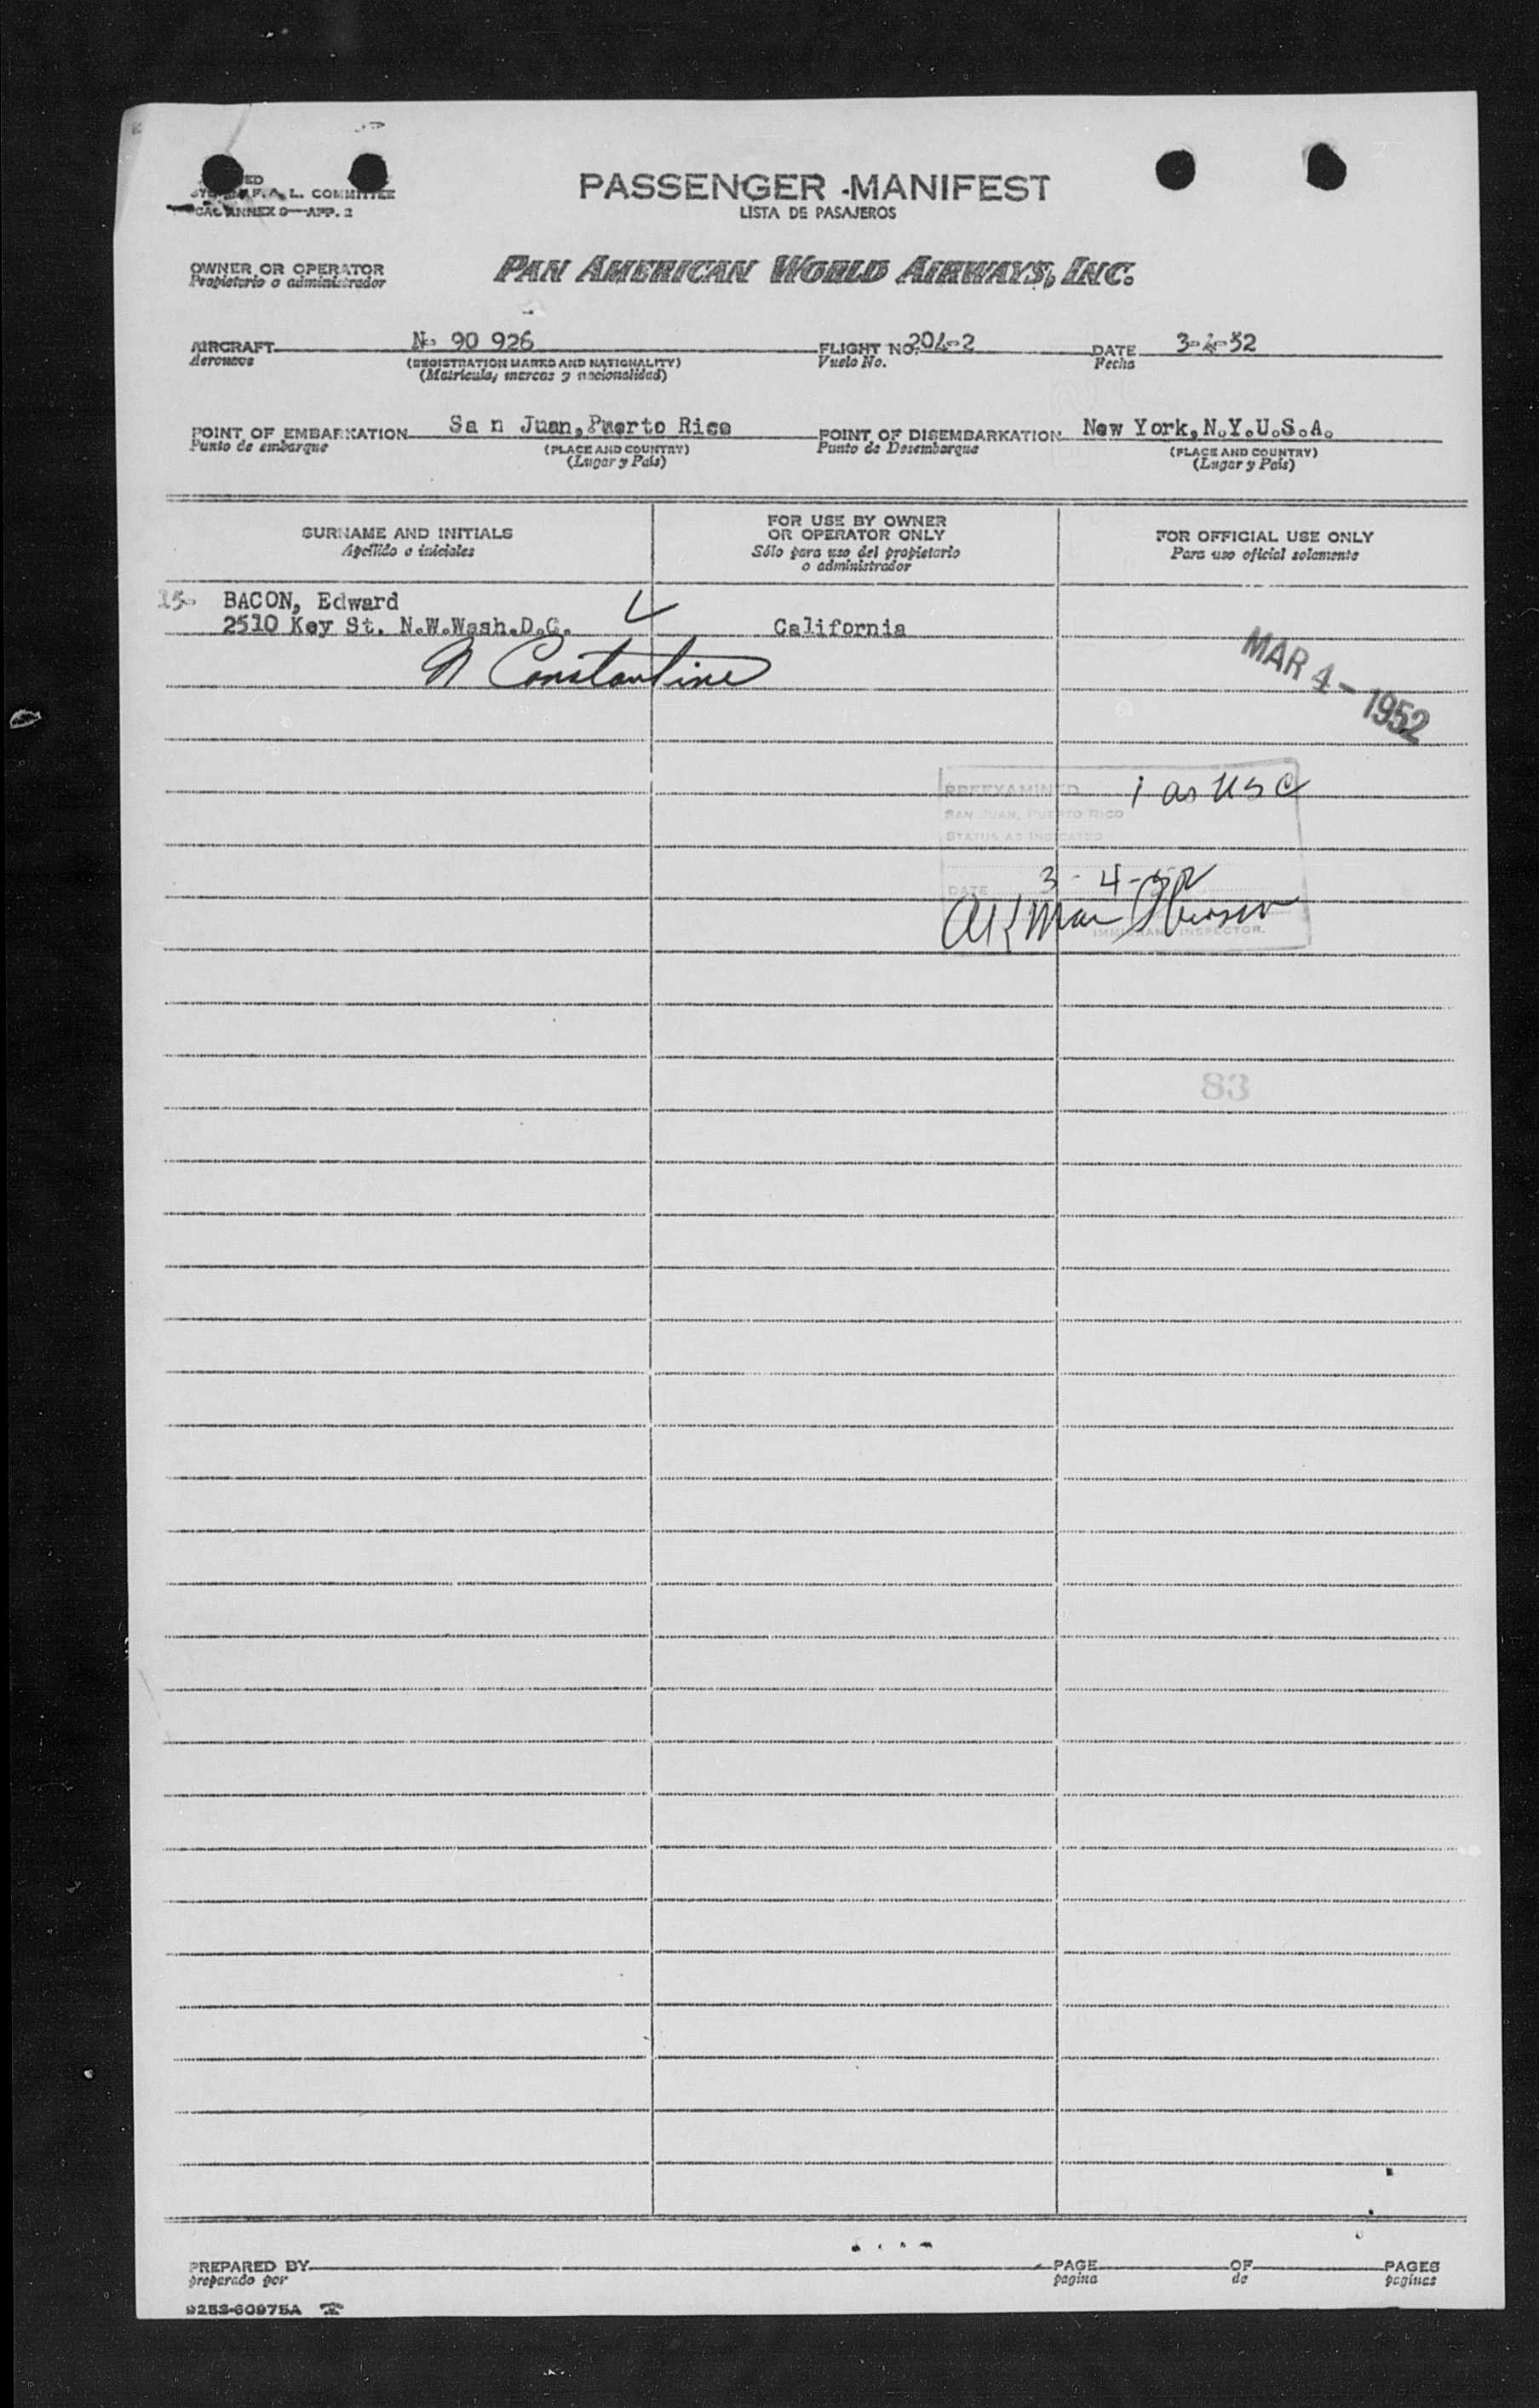 F. A. L. COMMITTEE
ANNEX 9—APP. 2
PASSENGER MANIFEST
LISTA DE PASAJEROS
OWNER OR OPERATOR
Propietario o administrador
PAN AMERICAN WORLD AIRWAYS, INC.
AIRCRAFT N- 90 926 FLIGHT NO. 204-2 DATE 3-4-52
Aeronave (REGISTRATION MARKS AND NATIONALITY) Vuelo No. Fecha
(Matrícula, marcas y nacionalidad)
POINT OF EMBARKATION Sa n Juan, Puerto Rico POINT OF DISEMBARKATION New York, N.Y.U.S.A.
Punto de embarque (PLACE AND COUNTRY) Punto de Desembarque (PLACE AND COUNTRY)
(Lugar y País) (Lugar y País)
SURNAME AND INITIALS
Apellido o iniciales
FOR USE BY OWNER
OR OPERATOR ONLY
Sólo para uso del propietario
o administrador
FOR OFFICIAL USE ONLY
Para uso oficial solamente
15- BACON, Edward
2510 Key St. N.W.Wash.D.C. California
N Constantine
MAR 4 - 1952
PREEXAMINED 1 as USC
SAN JUAN, PUERTO RICO
STATUS AS INDICATED
DATE 3-4-52
IMMIGRANT INSPECTOR.
83
PREPARED BY PAGE OF PAGES
preparado por pagina de paginas
9252-60975A